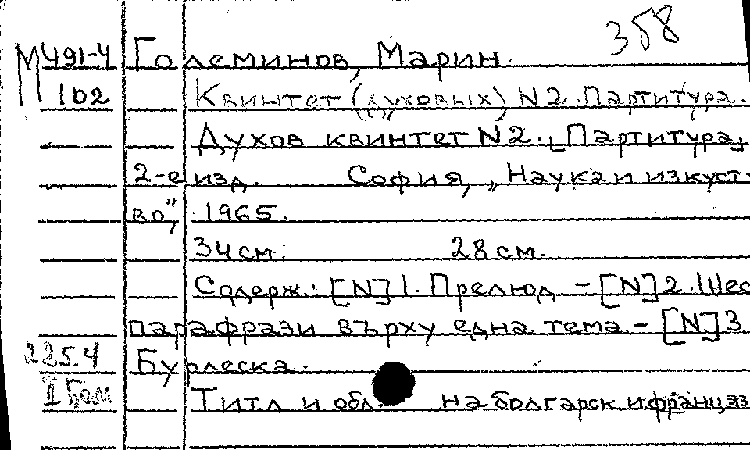 358
М 491-4 Големинов, Марин.
102 Квинтет (духовых) N2. Партитура.
Духов квинтет N2. [Партитура]
2-е изд. София, "Наука и изкуст-
во", 1965.
34 см. 28 см.
Содерж.: [N] 1. Прелюд - [N] 2. Шес
парафрази върху една тема - [N] 3
225.4 Бурлеска.
II Бол
Титл и обл. на болгарск и француз